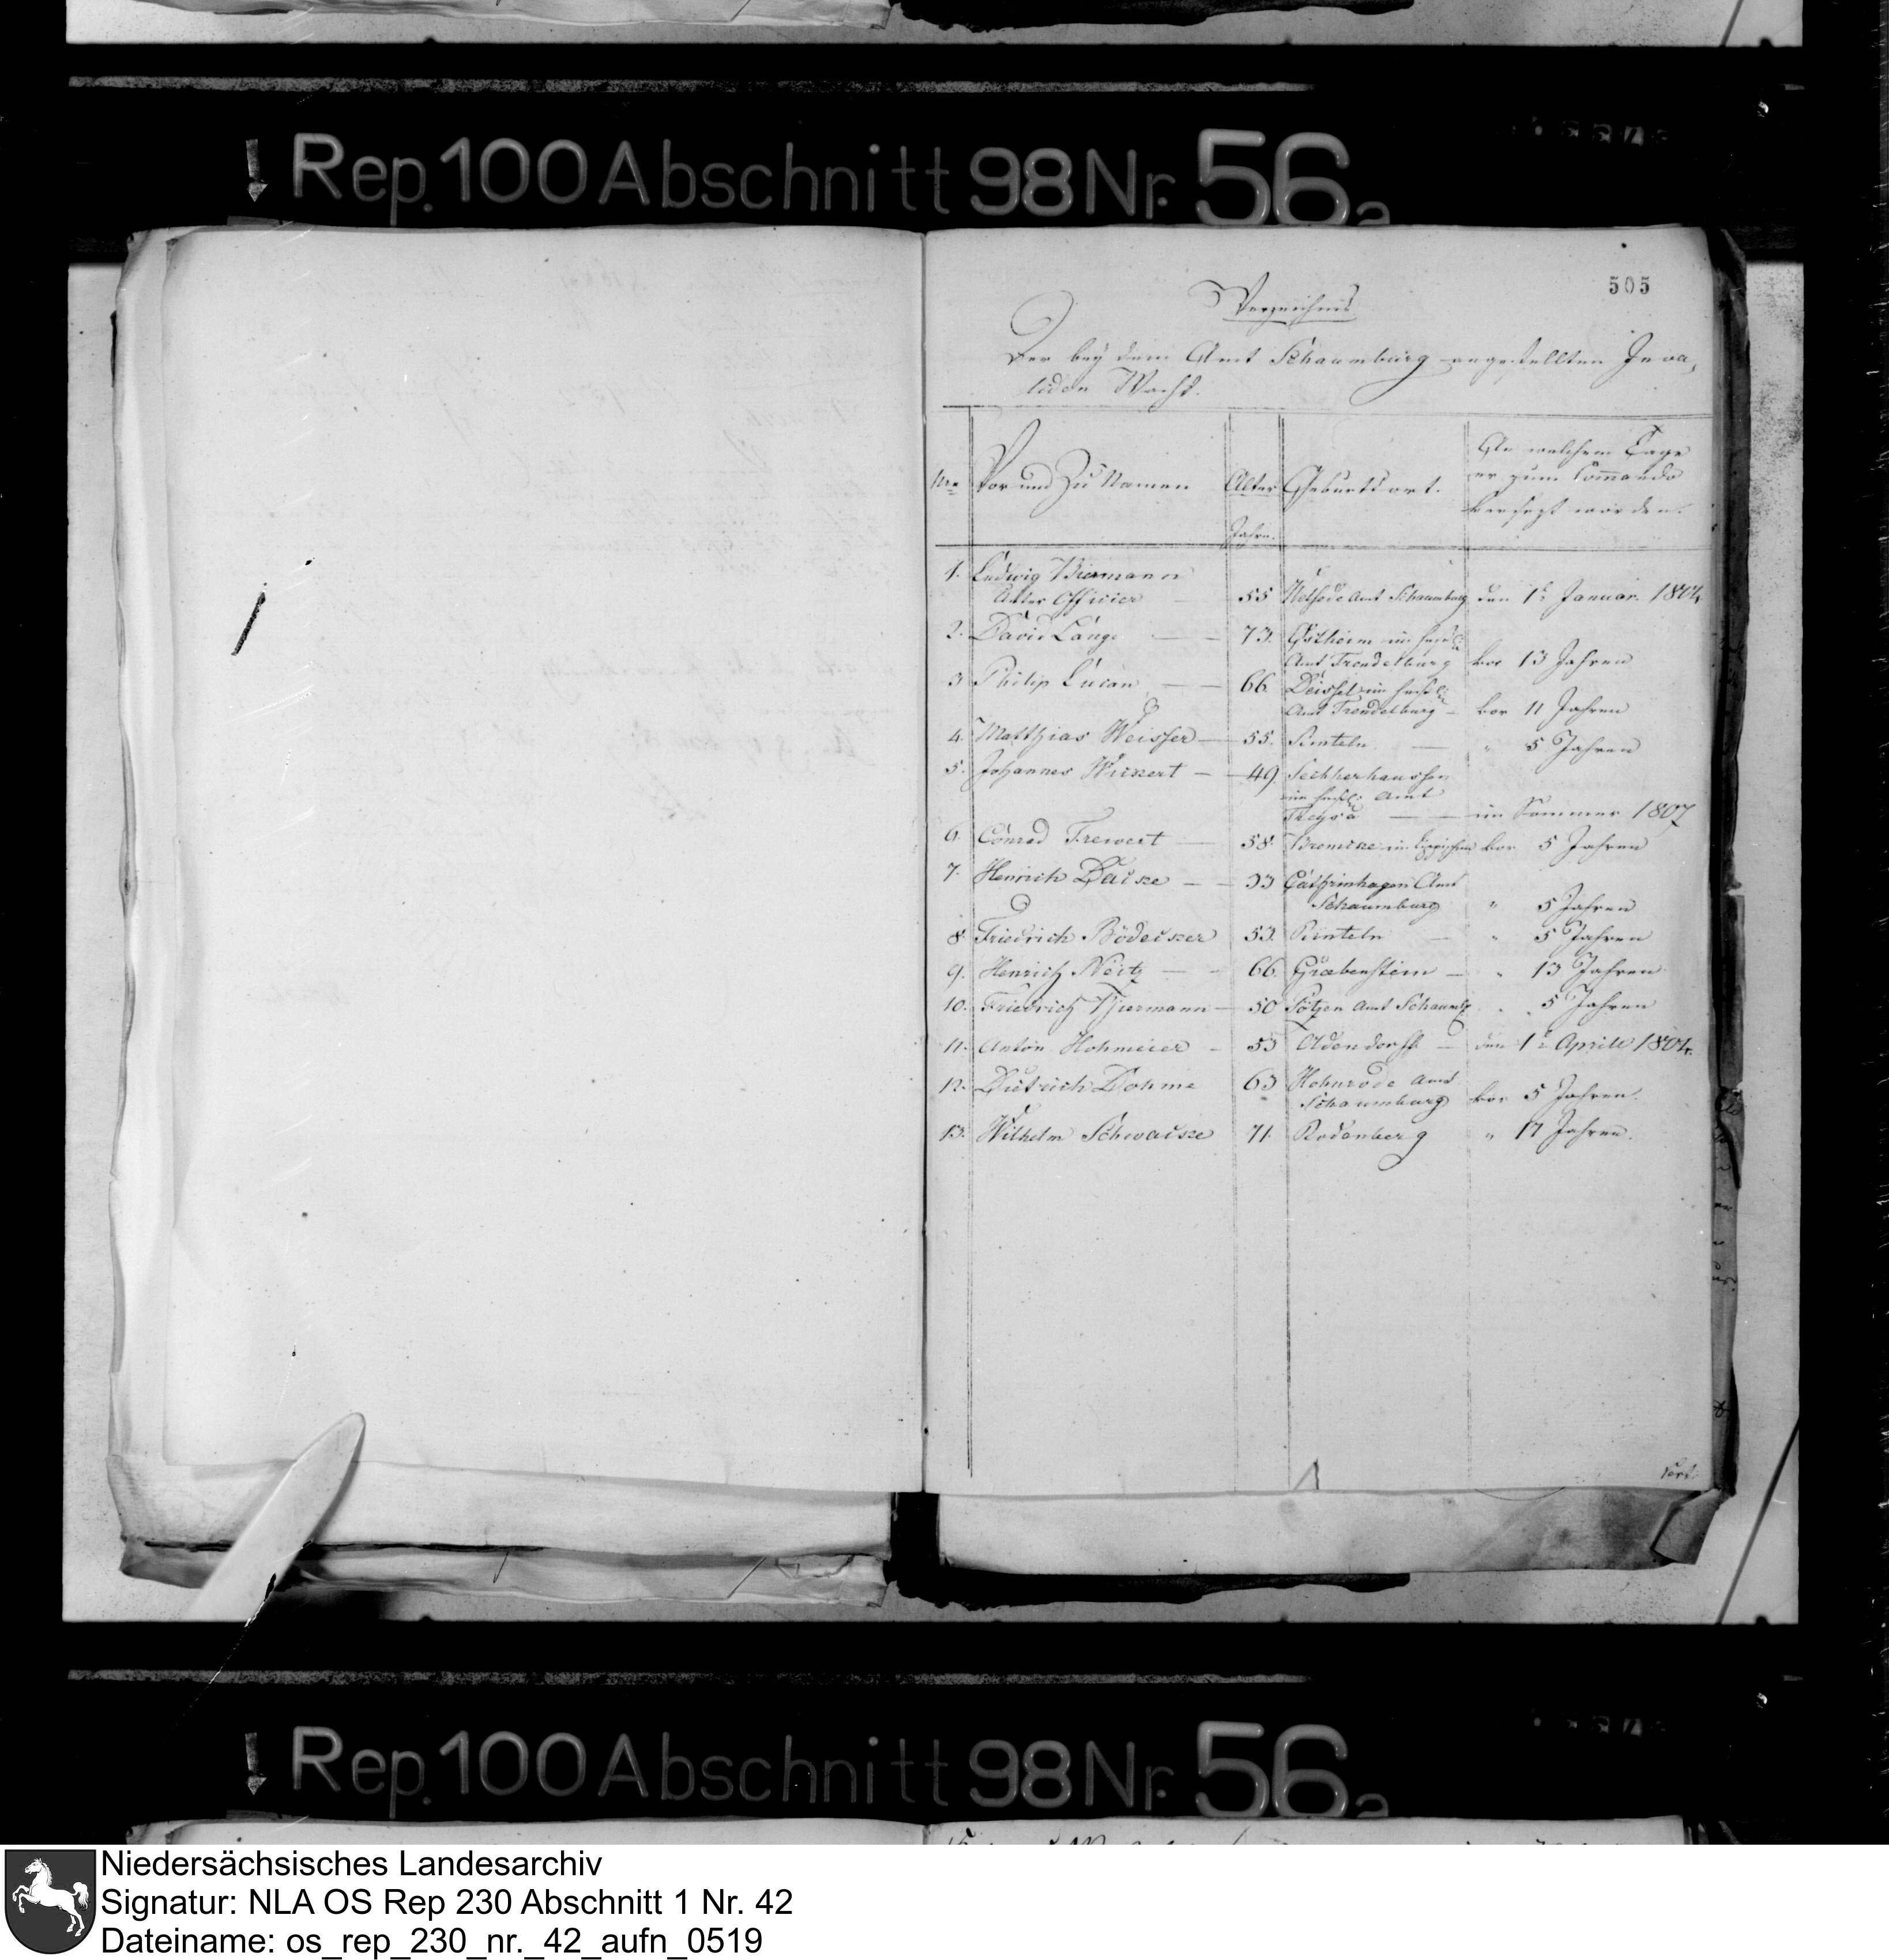 Rep. 100 Abschnitt 98 Nr. 56a
505
Verzeichnis
Der bey dem Amt Schaumburg angestellten Inva,
liden Wacht.
Nro Vor und Zu Namen Alter Jahre. Geburtsort. An welchem Tage
er zum Commando
versezt worden.
1. Ludwig Biermann
Unter Officier 55 Amt Schaumburg den 1t Januar. 1804
2. David Lange 73. Ostheim im
Amt Trendelburg vor 13 Jahren
3 Philip Lucan 66. Deissel im
Amt Trendelburg vor 11 Jahren
4. Matthias Weisser 55. Rinteln " 5 Jahren
5. Johannes Wickert 49
im Amt
Treysa im Sommer 1807
6. Conrad Frewert 58. Bremcke im Lippischen vor 5 Jahren
7. Henrich Dacke 33 Cathrinhagen Amt
Schaumburg " 5 Jahren
8 Friedrich Bödecker 53. Rinteln " 5 Jahren
9. Henrich 66. Grebenstein " 13 Jahren
10. Friedrich 50 Amt Schaumb. " 5 Jahren
11. Anton Hohmeier 55 Oldendorff den 1t Aprill 1804.
12. Dietrich Dohme 63 Hohnrode Amt
Schaumburg vor 5 Jahren.
13. Wilhelm Schwacke 71. Rodenberg " 17 Jahren.
Rep. 100 Abschnitt 98 Nr. 56a
Niedersächsisches Landesarchiv
Signatur: NLA OS Rep 230 Abschnitt 1 Nr. 42
Dateiname: os_rep_230_nr._42_aufn_0519